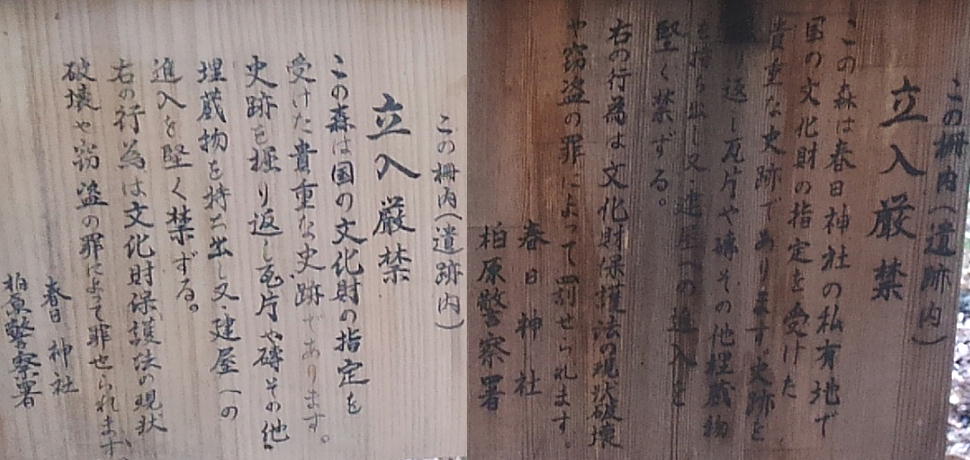 この柵内(遺跡内)
立入厳禁
この森は国の文化財の指定を
受けた貴重な史跡であります。
史跡を掘り返し瓦片や磚その他
埋蔵物を持ち出し又建屋への
進入を堅く禁ずる。
右の行為は文化財保護法の現状
破壊や窃盗の罪によって罪せられます。
春日神社
柏原警察署
この柵内(遺跡内)
立入厳禁
この森は春日神社の私有地で
国の文化財の指定を受けた
貴重な史跡であります。史跡を
返し瓦片や磚その他埋蔵物
を持ち出し又建屋への進入を
堅く禁ずる。
右の行為は文化財保護法の現状破壊
や窃盗の罪によって罰せられます。
春日神社
柏原警察署